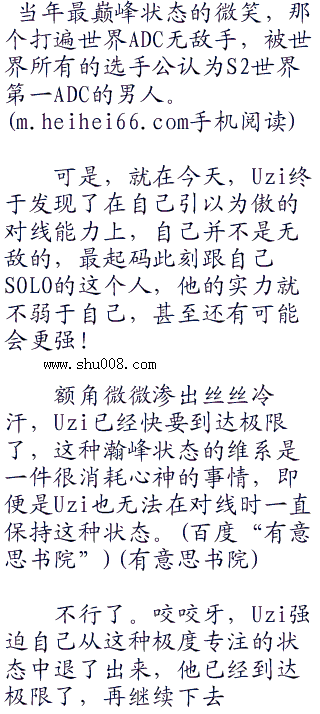 当年最巅峰状态的微笑，那
个打遍世界ADC无敌手，被世
界所有的选手公认为S2世界
第一ADC的男人。
(m.heihei66.com手机阅读)
可是，就在今天，Uzi终
于发现了在自己引以为傲的
对线能力上，自己并不是无
敌的，最起码此刻跟自己
SOLO的这个人，他的实力就
不弱于自己，甚至还有可能
会更强！
www.shu008.com
额角微微渗出丝丝冷
汗，Uzi已经快要到达极限
了，这种瀚峰状态的维系是
一件很消耗心神的事情，即
便是Uzi也无法在对线时一直
保持这种状态。(百度“有意
思书院”)(有意思书院)
不行了。咬咬牙，Uzi强
迫自己从这种极度专注的状
态中退了出来，他已经到达
极限了，再继续下去